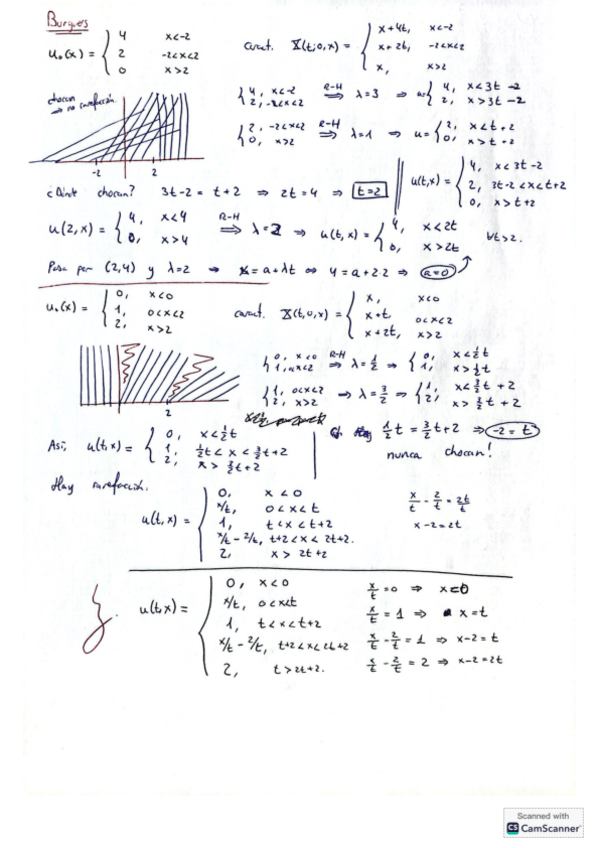 Burgers
u₀(x) = { 4 x<-2
2 -2<x<2
0 x>2
caract. X(t;0,x) = { x+4t, x<-2
x+2t, -2<x<2
x, x>2
chocan
⇒ no rarefacción
-2 2
{ 4, x<-2
2, -2<x<2 R-H ⟹ λ=3 ⇒ u { 4, x<3t-2
2, x>3t-2
{ 2, -2<x<2
0, x>2 R-H ⟹ λ=1 ⇒ u= { 2, x<t+2
0, x>t+2
¿Dónde chocan? 3t-2 = t+2 ⇒ 2t=4 ⇒ t=2
u(t,x) = { 4, x<3t-2
2, 3t-2<x<t+2
0, x>t+2
u(2,x) = { 4, x<4
0, x>4 R-H ⟹ λ=2 ⇒ u(t,x) = { 4, x<2t
0, x>2t ∀t>2.
Pasa por (2,4) y λ=2 ⇒ x=a+λt ⇔ 4=a+2·2 ⇒ a=0
u₀(x) = { 0, x<0
1, 0<x<2
2, x>2
caract. X(t,0,x) = { x, x<0
x+t, 0<x<2
x+2t, x>2
2
{ 0, x<0
1, 0<x<2 R-H ⟹ λ=1/2 ⇒ { 0, x<½t
1, x>½t
{ 1, 0<x<2
2, x>2 ⇒ λ=3/2 ⇒ { 1, x<3/2 t+2
2, x>3/2 t+2
Así, u(t,x) = { 0, x<½t
1, ½t<x<3/2 t+2
2, x>3/2 t+2
½t = 3/2 t+2 ⇒ -2=t
nunca chocan!
Hay rarefacción.
u(t,x) = { 0, x<0
x/t, 0<x<t
1, t<x<t+2
x/t - 2/t, t+2<x<2t+2.
2, x>2t+2
x/t - 2/t = 2t/t
x-2=2t
u(t,x) = { 0, x<0
x/t, 0<x<t
1, t<x<t+2
x/t - 2/t, t+2<x<2t+2
2, t>2t+2.
x/t = 0 ⇒ x=0
x/t = 1 ⇒ x=t
x/t - 2/t = 1 ⇒ x-2=t
x/t - 2/t = 2 ⇒ x-2=2t
Scanned with
CS CamScanner